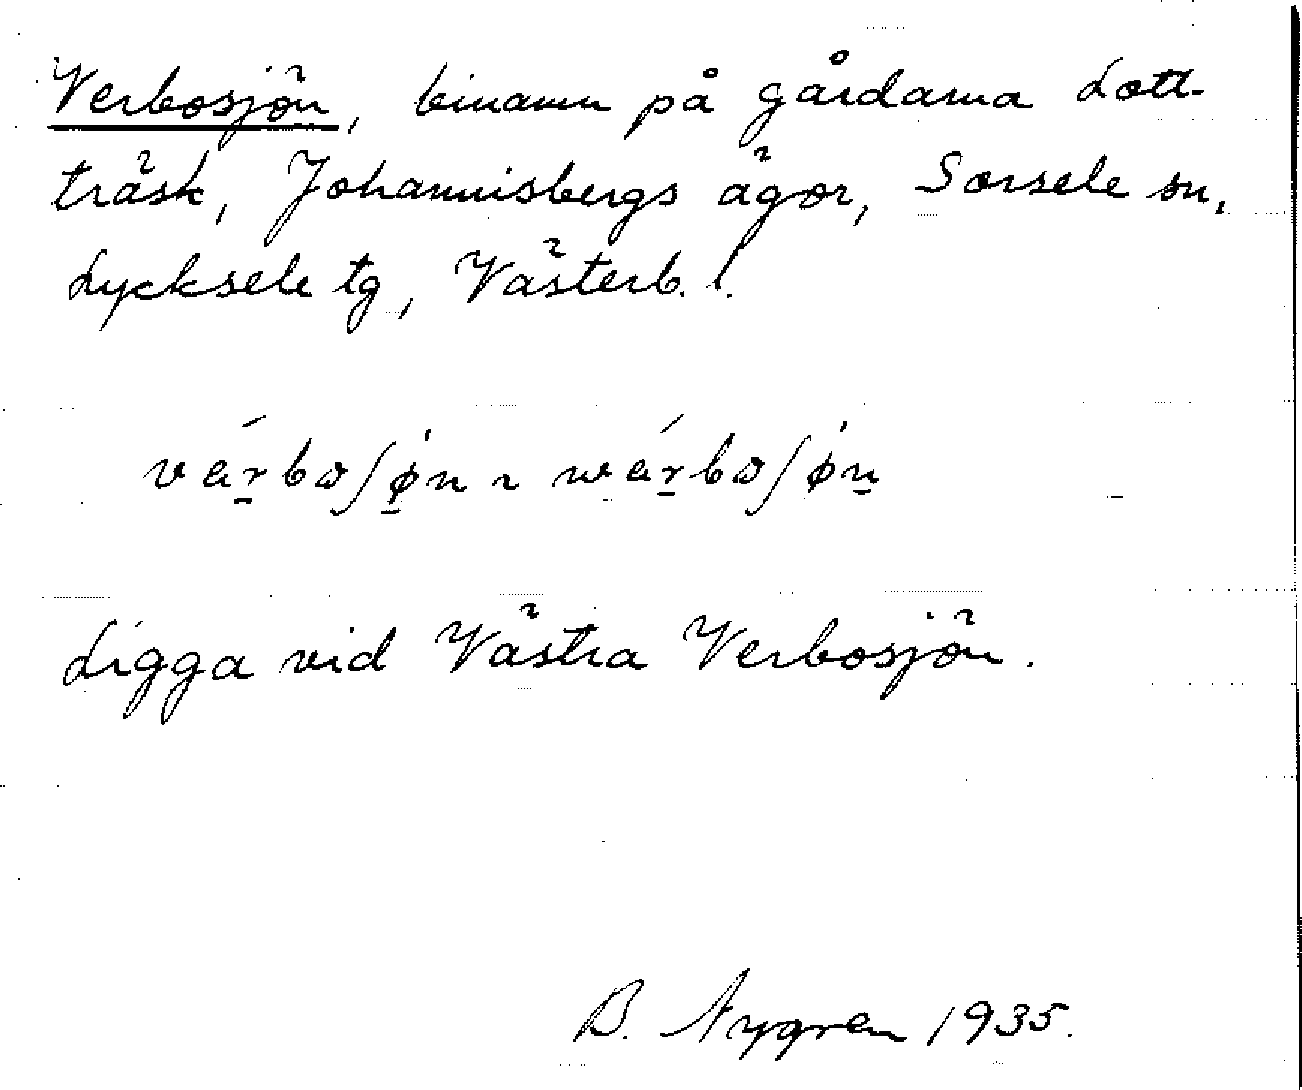 Verbosjön, binamn på gårdarna Lott-
träsk, Johannisbergs ägor, Sorsele sn,
Lycksele tg, Västerb. l.
vérbosjøn ~ wérbosjøn
Ligga vid Västra Verbosjön.
B. Nygren 1935.